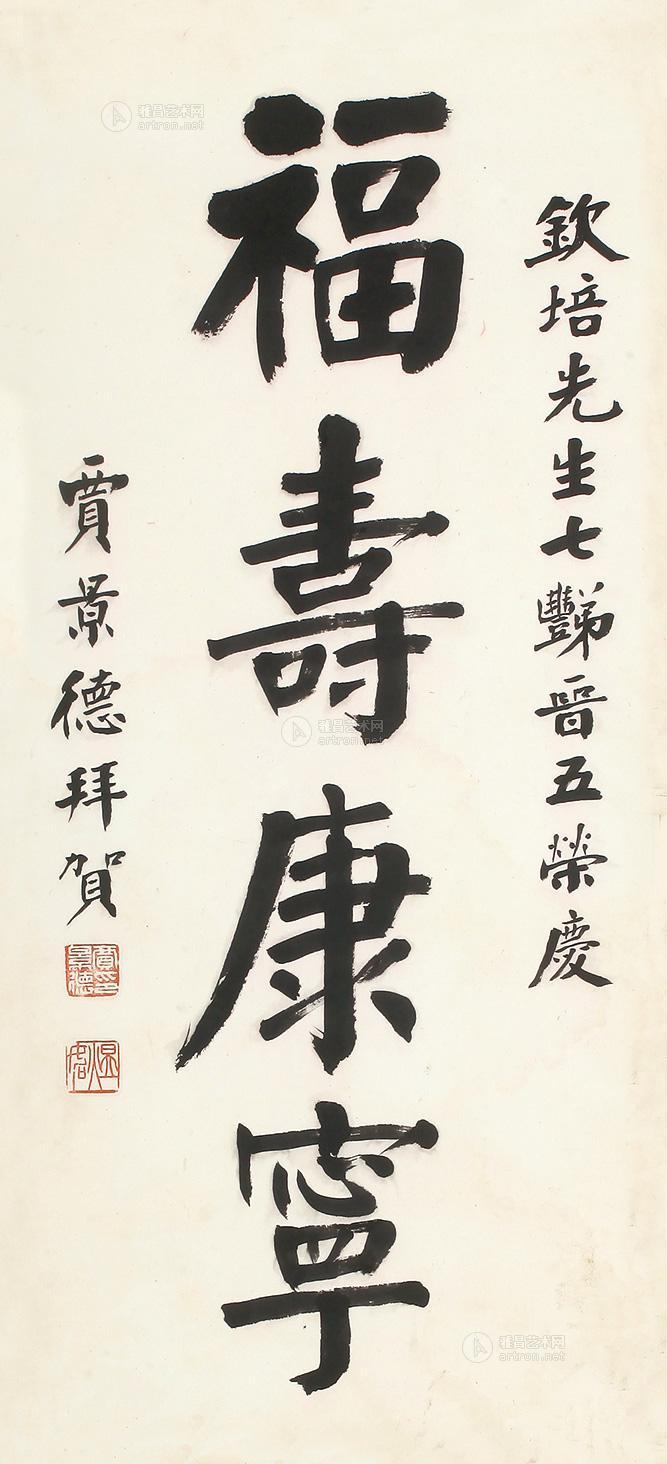 欽培先生七豑晉五榮慶
福壽康寧
賈景德拜賀
賈印景德
雅昌艺术网
artron.net
雅昌艺术网
artron.net
雅昌艺术网
artron.net